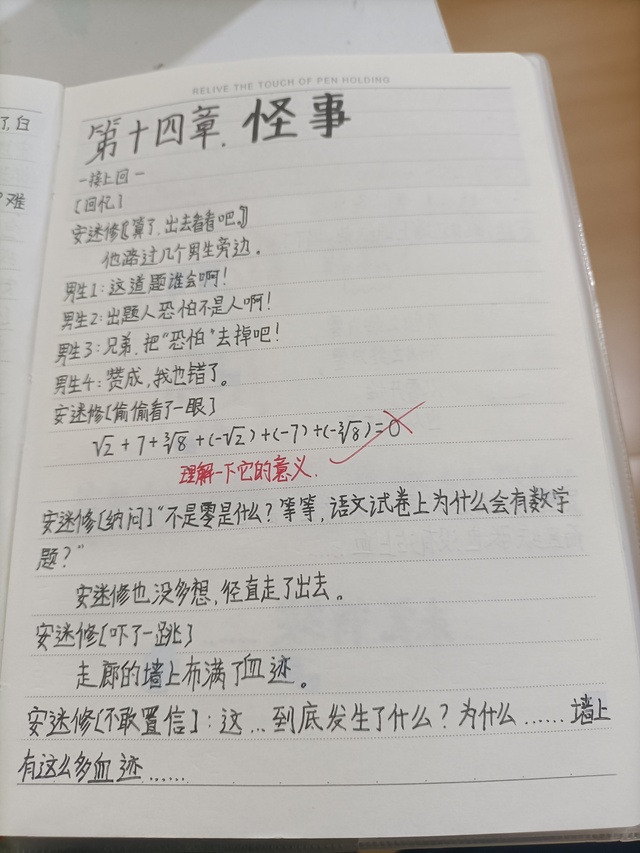 RELIVE THE TOUCH OF PEN HOLDING
第十四章.怪事
-接上回-
[回忆]
安迷修〖算了,出去看看吧。〗
他路过几个男生旁边。
男生1:这道题谁会啊!
男生2:出题人恐怕不是人啊!
男生3:兄弟,把"恐怕"去掉吧!
男生4:赞成,我也错了。
安迷修[偷偷看了一眼]
√2+7+∛8+(-√2)+(-7)+(-∛8)=0
理解一下它的意义.
安迷修[纳闷]"不是零是什么?等等,语文试卷上为什么会有数学
题?"
安迷修也没多想,径直走了出去。
安迷修[吓了一跳]
走廊的墙上布满了血迹。
安迷修[不敢置信]:这...到底发生了什么?为什么......墙上
有这么多血迹......
了,白
难